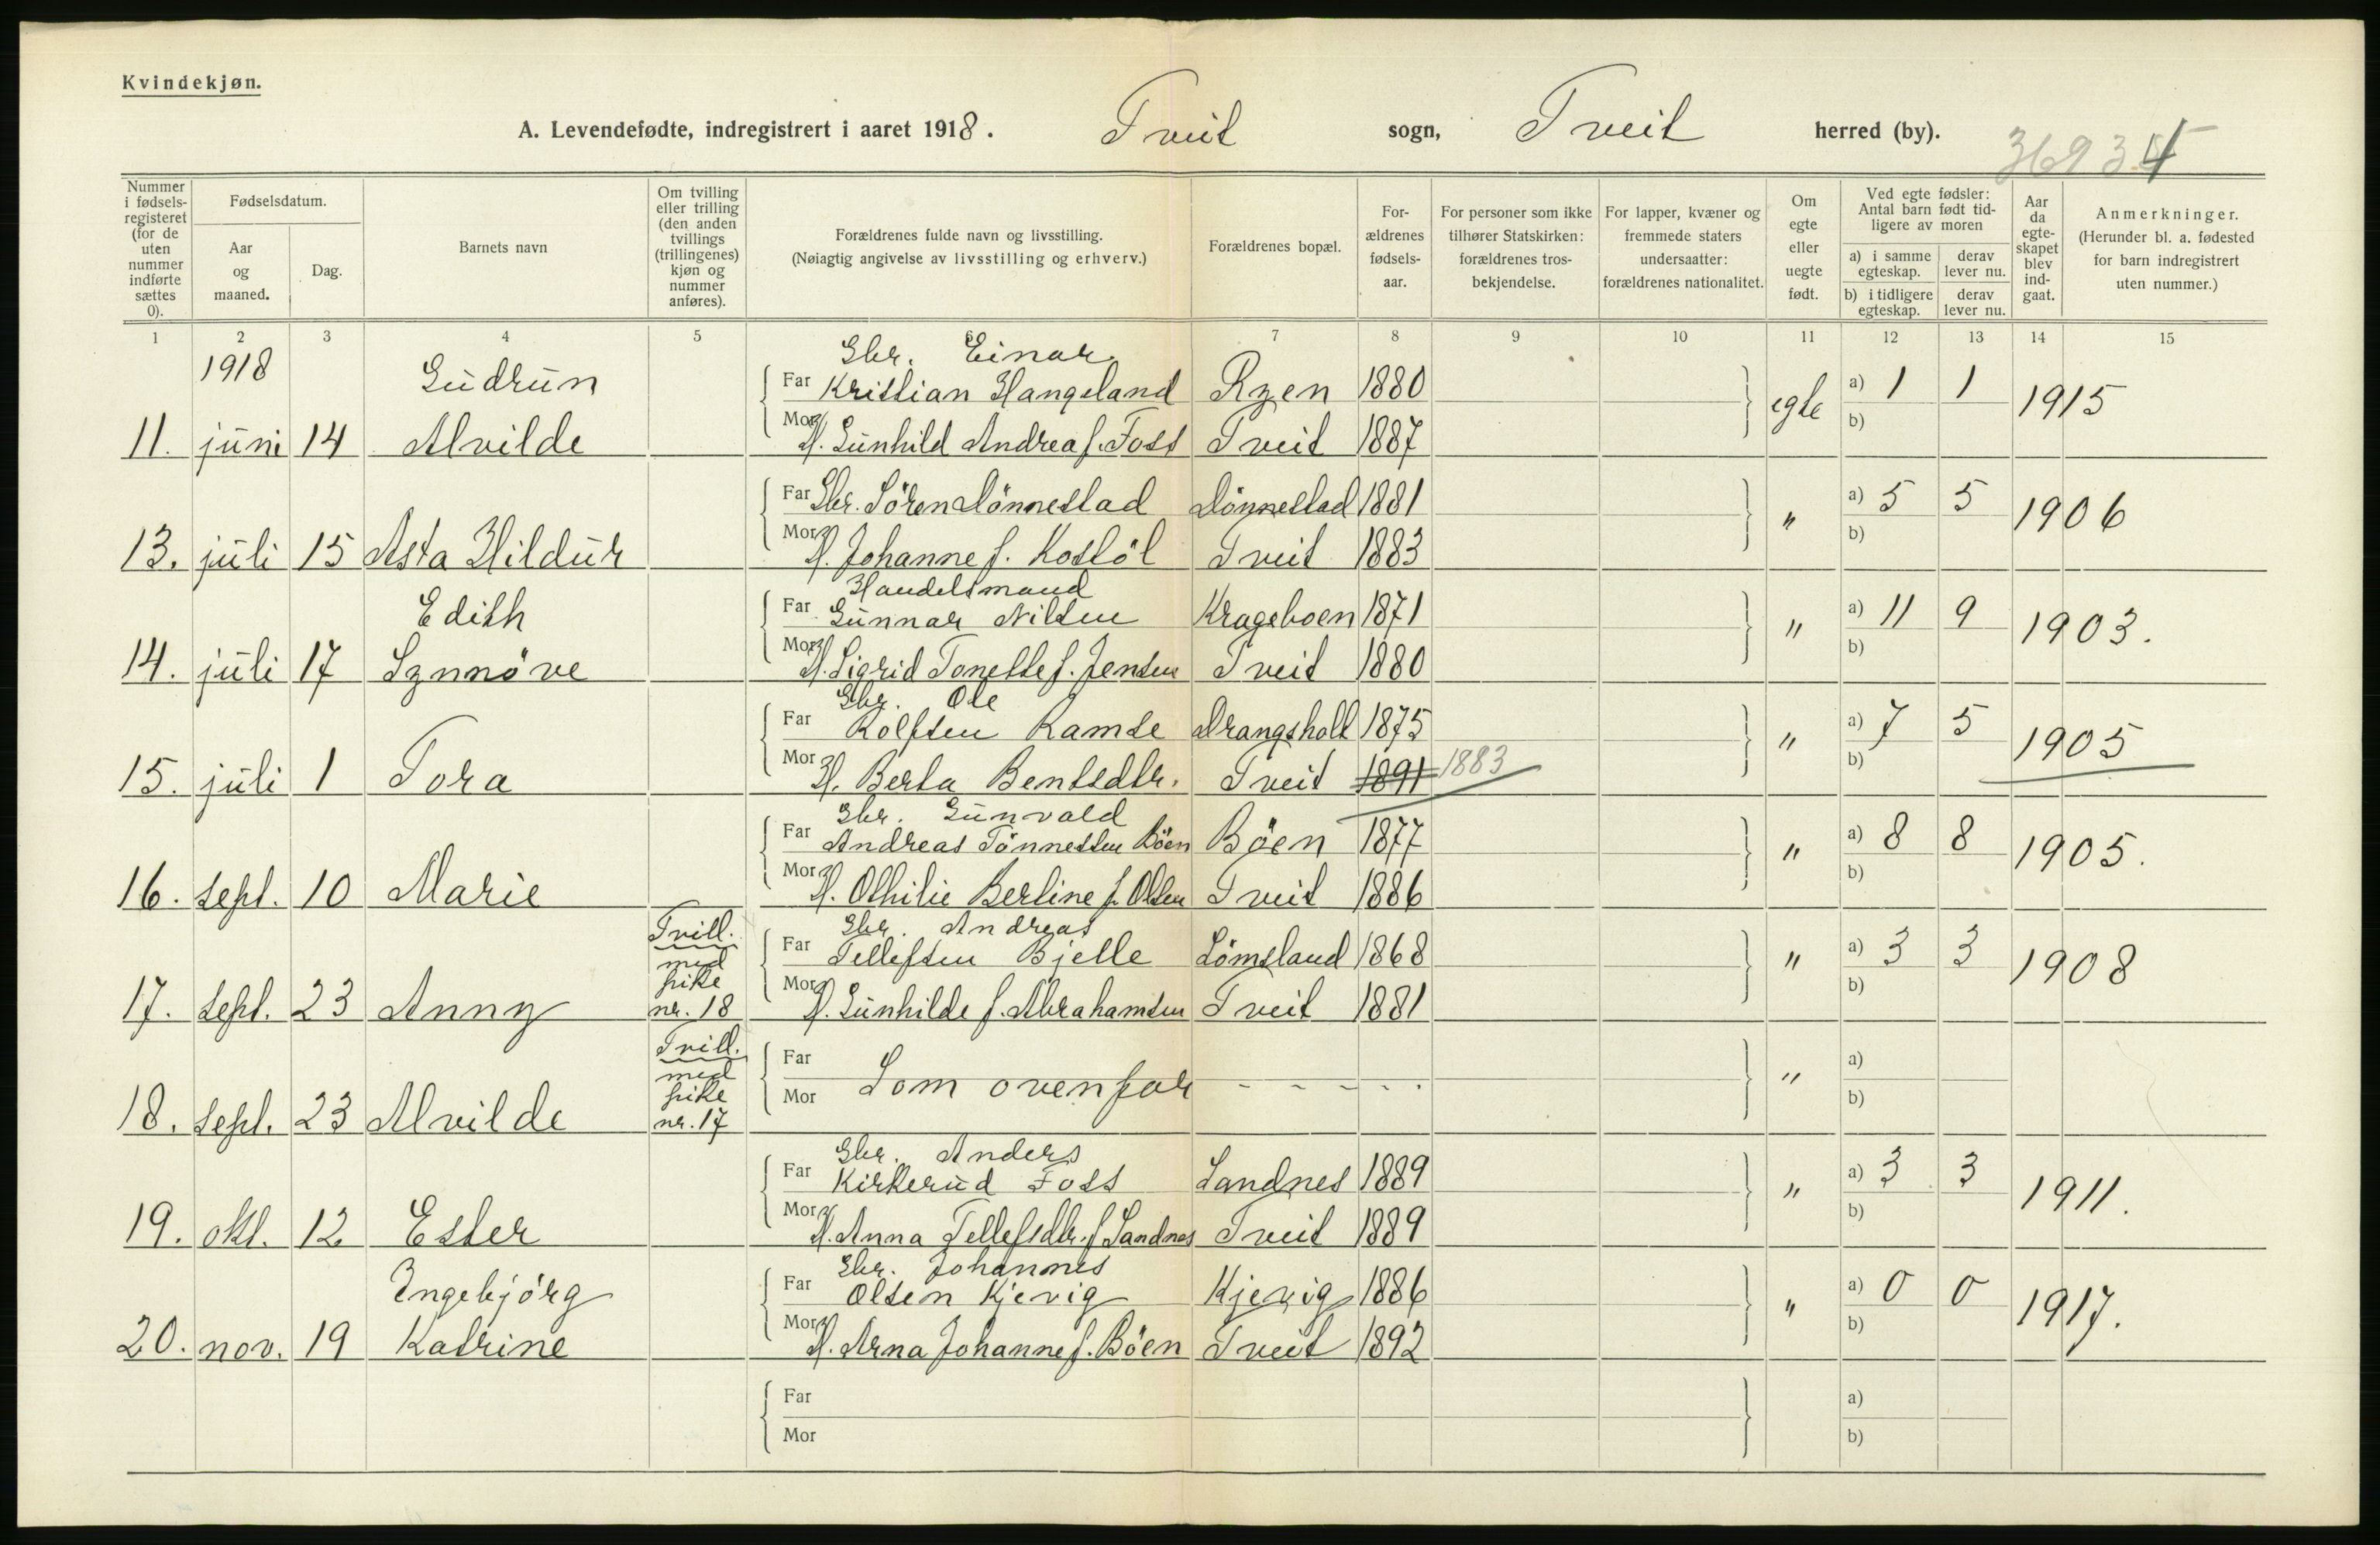 Kvindekjøn.
A. Levendefødte, indregistrert i aaret 1918. Tveit sogn, Tveit herred (by).
3693 4
Nummer i fødselsregisteret (for de uten nummer indførte sættes 0).
Fødselsdatum.
Aar og maaned.
Dag.
Barnets navn
Om tvilling eller trilling (den anden tvillings (trillingenes) kjøn og nummer anføres).
Forældrenes fulde navn og livsstilling.
(Nøiagtig angivelse av livsstilling og erhverv.)
Forældrenes bopæl.
For-ældrenes fødsels-aar.
For personer som ikke tilhører Statskirken: forældrenes tros-bekjendelse.
For lapper, kvæner og fremmede staters undersaatter: forældrenes nationalitet.
Om egte eller uegte født.
Ved egte fødsler: Antal barn født tid-ligere av moren
a) i samme egteskap. derav lever nu.
b) i tidligere egteskap. derav lever nu.
Aar da egte-skapet blev ind-gaat.
Anmerkninger.
(Herunder bl. a. fødested for barn indregistrert uten nummer.)
1 2 3 4 5 6 7 8 9 10 11 12 13 14 15
1918 Gudrun Gbr. Einar
Far Kristian Hangeland Ryen 1880 egte a) 1 1 1915
11. juni 14 Alvilde Mor H. Gunhild Andrea f. Foss Tveit 1887 b)
Far Gbr. Sören Dönnestad Dönnestad 1881 " a) 5 5 1906
13. juli 15 Asta Hildur Mor H. Johanne f. Kostöl Tveit 1883 b)
Handelsmand
Edith Far Gunnar Nilsen Krageboen 1871 " a) 11 9 1903.
14. juli 17 Synnöve Mor H. Sigrid Tonette f. Jensen Tveit 1880 b)
Gbr. Ole
Far Rolfsen Ramse Drangsholt 1875 " a) 7 5 1905
15. juli 1 Tora Mor H. Berta Bentsdtr. Tveit 1891 1883 b)
Gbr. Gunvald
Far Andreas Tönnessen Böen Böen 1877 " a) 8 8 1905.
16. sept. 10 Marie Mor H. Othilie Berline f. Olsen Tveit 1886 b)
Tvill. med pike nr. 18 Gbr. Andreas
Far Tellefsen Bjelle Lömsland 1868 " a) 3 3 1908
17. sept. 23 Anny Mor H. Gunhilde f. Abrahamsen Tveit 1881 b)
Tvill. med pike nr. 17
Far
18. sept. 23 Alvilde Mor Som ovenfor - - - - - " a) b)
Gbr. Anders
Far Kirkerud Foss Sandnes 1889 " a) 3 3 1911.
19. okt. 12 Ester Mor H. Anna Tellefsdtr. f. Sandnes Tveit 1889 b)
Gbr. Johannes
Engebjörg Far Olsen Kjevig Kjevig 1886 " a) 0 0 1917.
20. nov. 19 Katrine Mor H. Arna Johanne f. Böen Tveit 1892 b)
Far a)
Mor b)